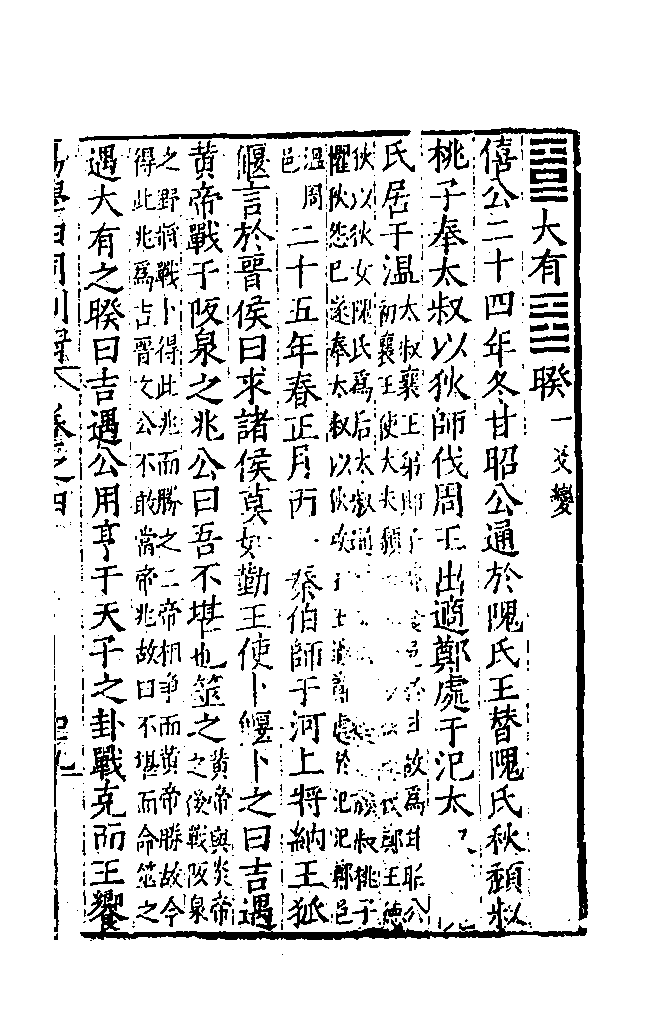 大有 睽 一爻變
僖公二十四年冬甘昭公通於隗氏王替隗氏秋頹叔
桃子奉太叔以狄師伐周王出適鄭處于氾太
氏居于温 太叔襄王弟 邑 故爲甘昭公
初襄王使大夫頹 伐鄭王德
狄以狄女隗氏爲后太叔通 頹叔桃子
懼狄怨己遂奉太叔以狄攻 王王適鄭處於氾氾鄭邑
温周
邑 二十五年春正月丙 秦伯師于河上將納王狐
偃言於晉侯曰求諸侯莫如勤王使卜偃卜之曰吉遇
黃帝戰于阪泉之兆公曰吾不堪也筮之 黃帝與炎帝
之後戰阪泉
之野將戰卜得此兆而勝之二帝相爭而黃帝勝故今
得此兆爲吉晉文公不敢當帝兆故曰不堪而命筮之
遇大有之睽曰吉遇公用亨于天子之卦戰克而王饗
卷之四